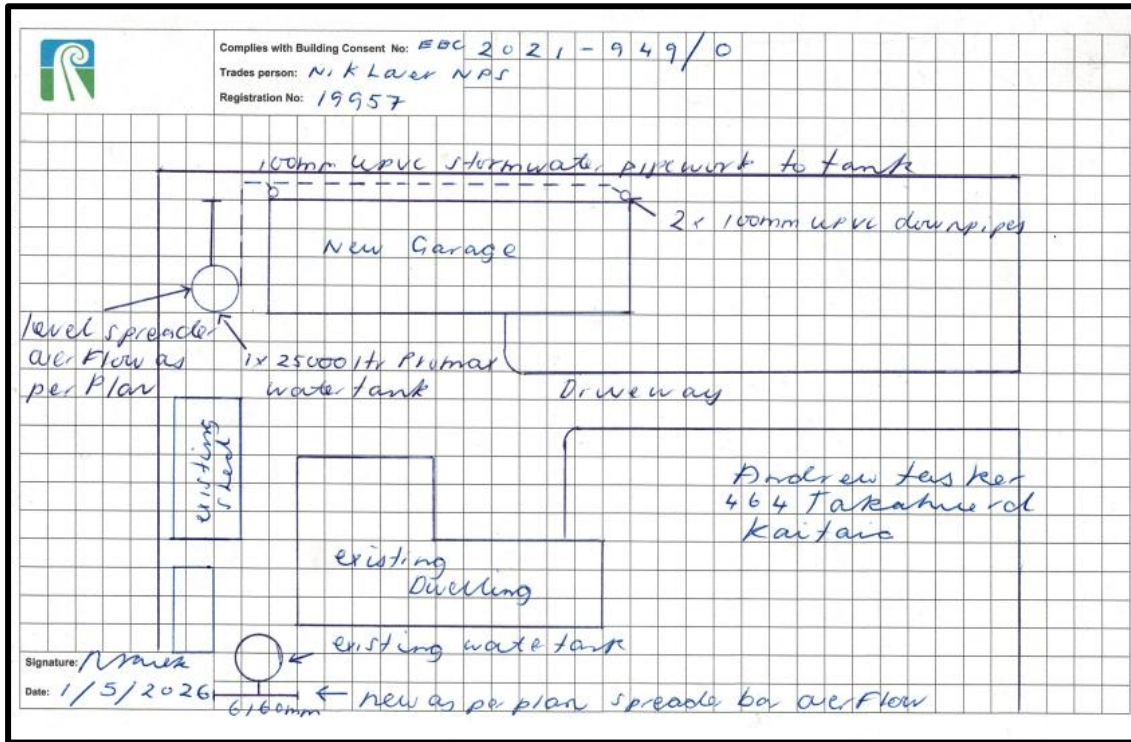 Complies with Building Consent No: EBC 2021-949/0
Trades person: Nik Laver NPS
Registration No: 19957
100mm upvc stormwater pipework to tank
2x 100mm upvc downpipes
New Garage
level spreader
overflow as
per Plan
1x 25000 ltr Promax
water tank
Driveway
existing
shed
Andrew Tasker
464
Kaitaia
existing
Dwelling
existing wate tank
Signature:
Date: 1/5/2026
new as per plan spreader bar overflow